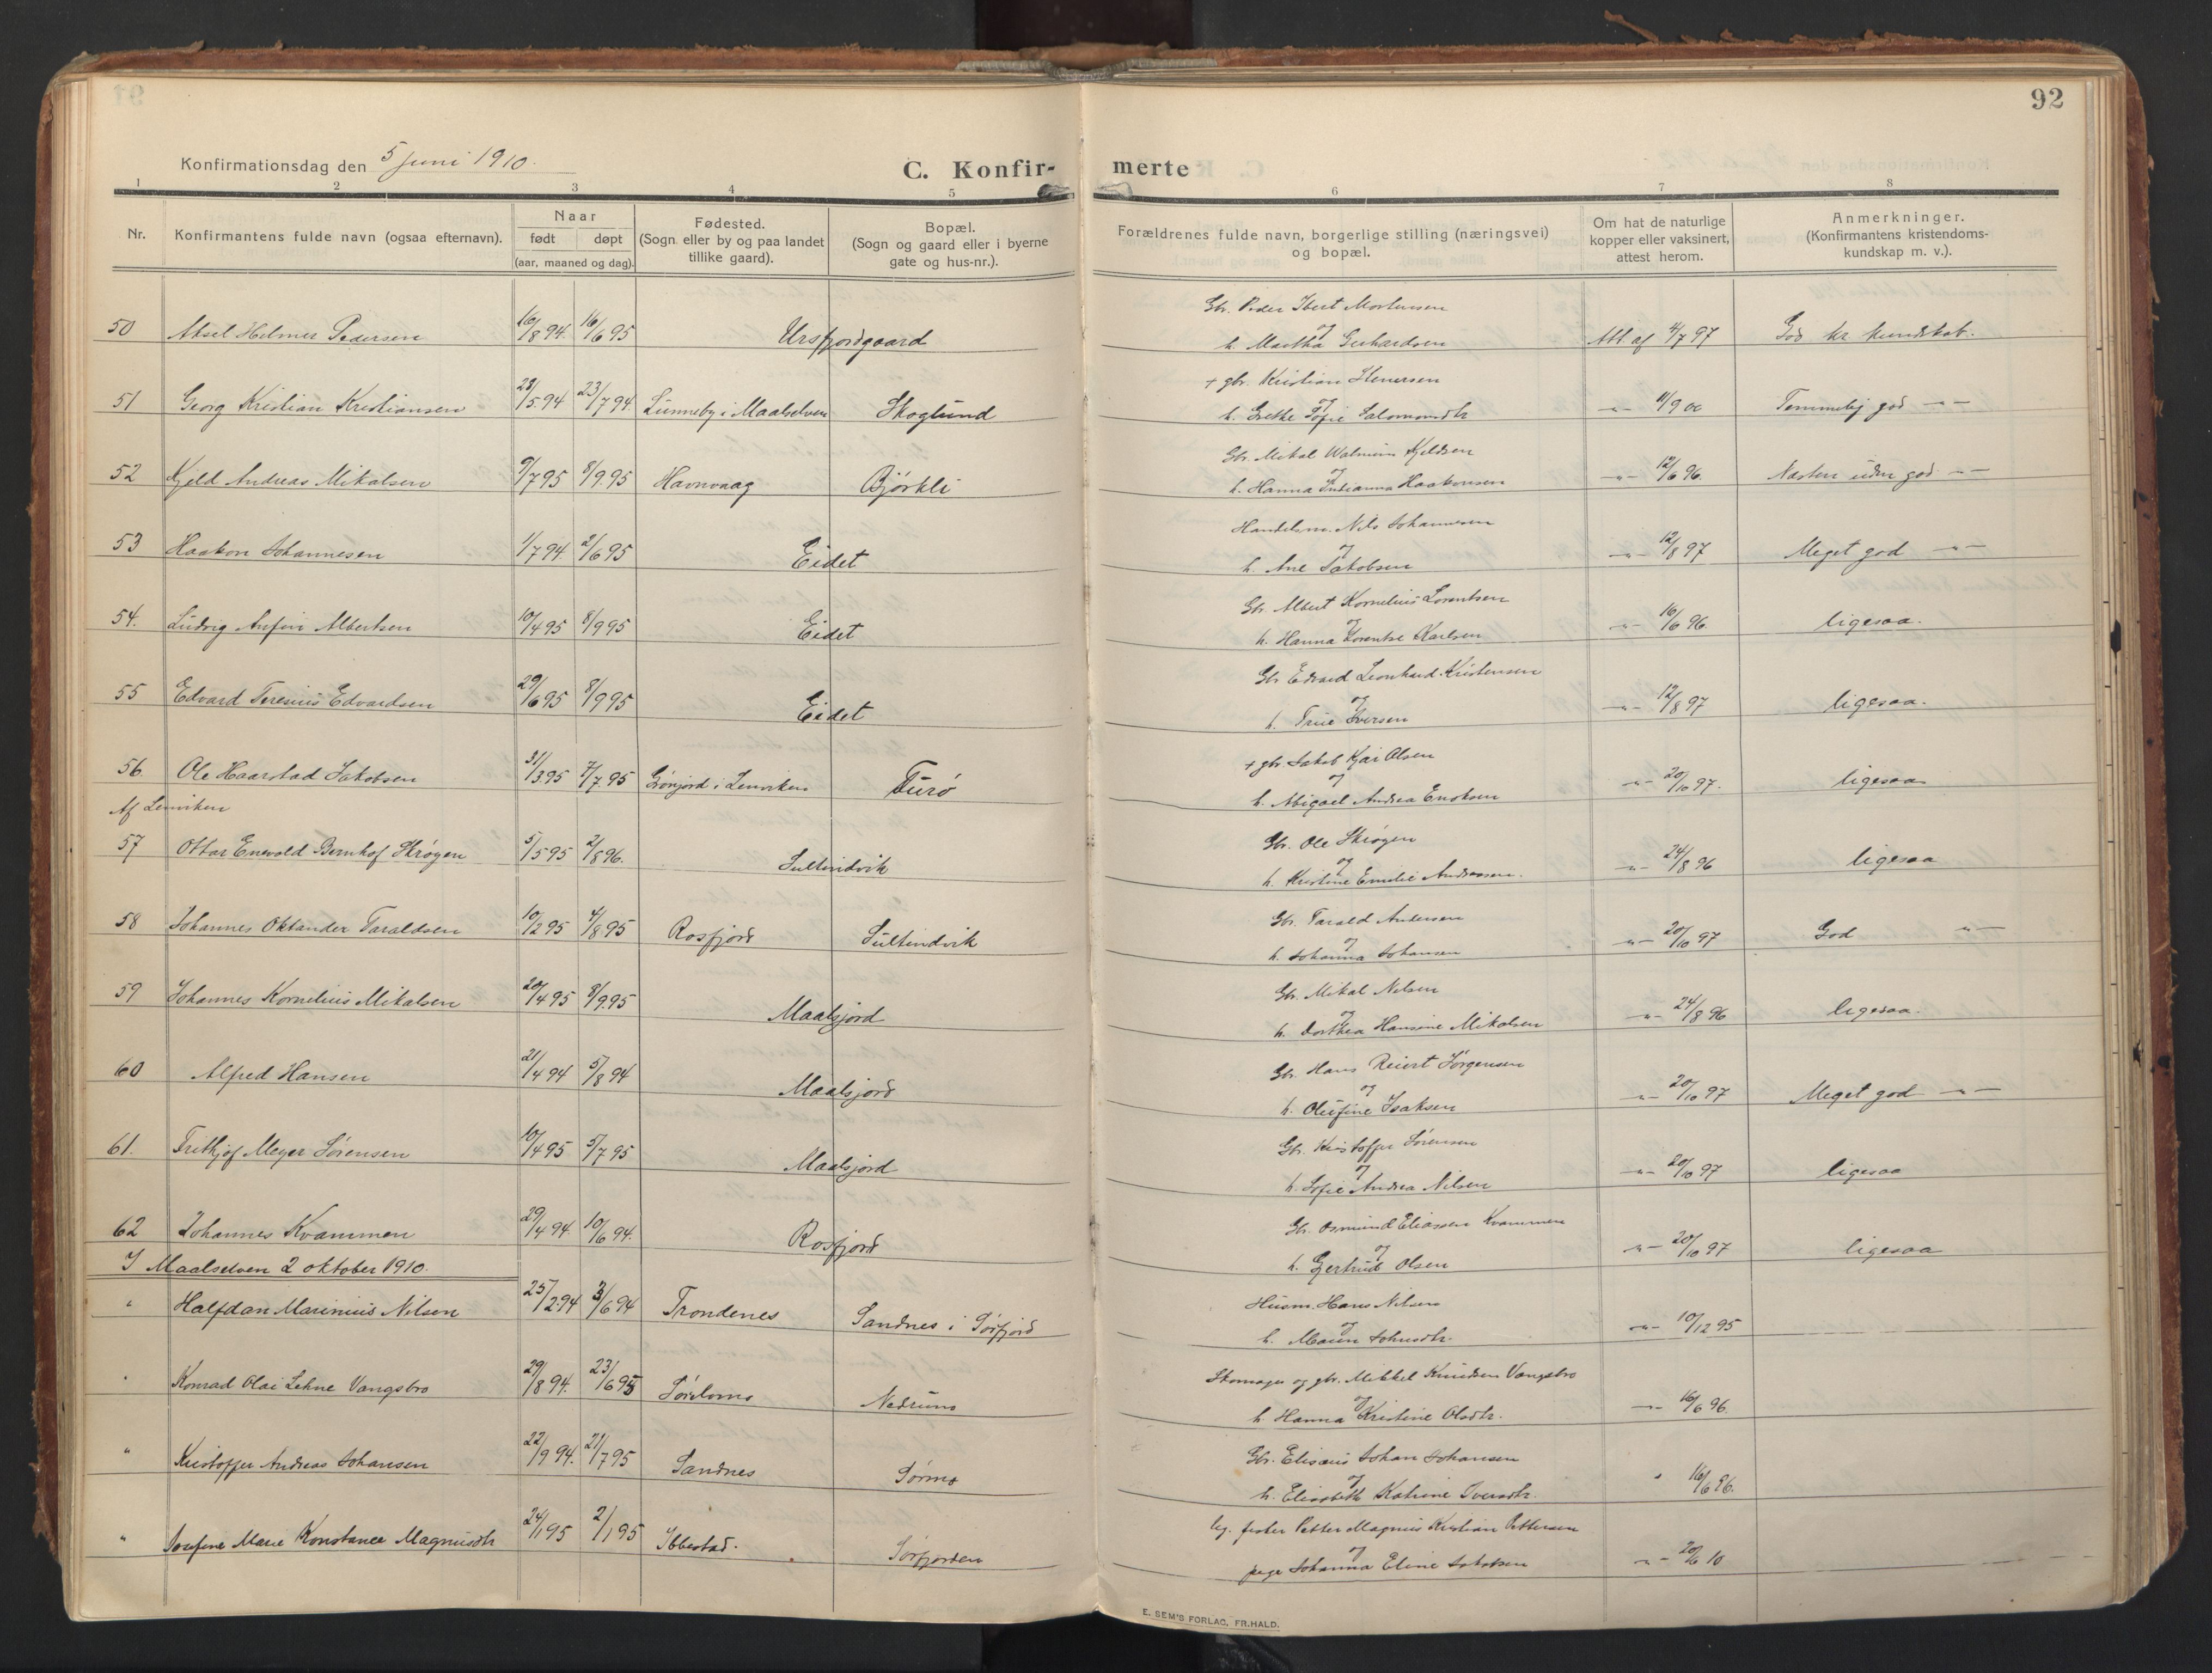 92
Konfirmationsdag den 5 juni 1910.
C. Konfir-
merte
1 2 3 4 5 6 7 8
Nr.
Konfirmantens fulde navn (ogsaa efternavn).
Naar
født døpt
(aar, maaned og dag).
Fødested.
(Sogn eller by og paa landet
tillike gaard).
Bopæl.
(Sogn og gaard eller i byerne
gate og hus-nr.).
Forældrenes fulde navn, borgerlige stilling (næringsvei)
og bopæl.
Om hat de naturlige
kopper eller vaksinert,
attest herom.
Anmerkninger.
(Konfirmantens kristendoms-
kundskap m. v.).
Gbr. Peder Ibert Mortensen
og
50 Aksel Helmer Pedersen 16/8 94. 16/6 95 Ursfjordgaard h. Martha Gerhardsen Att af 4/7 97 God kr kundskab.
+ gbr. Kristian Henersen
og
51 Georg Kristian Kristiansen 28/5.94 23/7 94. Lünneby i Maalselven Skoglund h. Grethe Sofie Salomonsdtr -"- 11/9 00 Temmelig god -"-
Gbr. Mikal Walmün Kjeldsen
52 Kjeld Andreas Mikalsen 9/7 95 8/9.95 Havnvaag Bjørkli h. Hanna Haakonsen -"- 12/6 96. Næsten üdm god -"-
Handelsm. Nils Johannesen
og
53 Haakon Johannesen 1/7 94. 2/6 95 Eidet h. Ane Jakobsen -"- 12/8 97 Meget god -"-
Gbr. Albert Kornelius Lorentsen
og
54. Ludvig Anfin Albertsen 10/4 95 8/9 95 Eidet h. Hanna Lorentse Karlsen -"- 16/6 96. ligesaa.
Gbr Edvard Leonhard Kristensen
og
55 Edvard Teresius Edvardsen 29/6 95 8/9 95 Eidet h. Trine Iversen -"- 12/8 97 ligesaa.
+ gbr. Jakob Kjai Olsen
og
56. Ole Haarstad Jakobsen 31/3.95 7/7.95 Grønjord i Lenviken Furø h. Abigael Andrea Enoksen -"- 20/10 97. ligesaa
Af Lenviken
Gbr. Ole Skrøgen
og
57 Ottar Enevold Bernhof Skrøgen 5/5 95 2/8 96. Sultindvik h. Kristine Emelie Andreassen. -"- 24/8 96 ligesaa
Gbr. Tarald Andersen
og
58 Johannes Oktander Taraldsen 10/2 95 4/8 95 Rosfjord Sultindvik h. Johanna Johansen -"- 20/10 97 God -"-
Gbr. Mikal Nilsen
og
59 Johannes Kornelius Mikalsen 20/4 95 8/9.95 Maalsjord h. Dorthea Hansine Mikalsen -"- 24/8 96 ligesaa.
Gbr. Hans Reiert Jørgensen
og
60 Alfred Hansen 21/4 94 5/8 94 Maalsjord h. Olufine Isaksen -"- 20/10 97 Meget god -"-
Gbr. Kristoffer Sørensen
og
61. Frithjof Meyer Sørensen 10/4 95 5/7 95 Maalsjord h. Sofie Andrea Nilsen -"- 20/10 97 ligesaa
Gbr. Osmund Eliassen Kvammen
og
62 Johannes Kvammen 29/4 94. 10/6 94. Rosfjord h. Gertrud Olsen -"- 20/10 97 ligesaa
I Maalselven 2 oktober 1910.
Husm. Hans Nilsen
og
" Halfdan Marinius Nilsen 25/2.94 3/6 94 Trondenes Sandnes i Sørfjord h. Maren Johnsdtr. -"- 10/12 95
Skomager og gbr. Mikkel Knudsen Vangsbro
og
" Konrad Olai Lehne Vangsbro 29/8 94. 23/6 95 Nedrümo h. Hanna Kristine Olsdtr. -"- 16/6 96.
Gbr. Elisæus Johan Johansen
og
" Kristoffer Andreas Johansen 22/9 94. 21/7 95 Sandnes Sørmo h. Elisabeth Katrine Iversdtr. " 16/6 96.
Ug. fisker Petter Magnus Kristian Pettersen
og
" Josefine Marie Konstance Magnusdtr 24/1 95 2/1 95 Ibbestad. Sørfjorden pige Johanna Eline Jakobsen -"- 20/6 10
E. SEM'S FORLAG, FR.HALD.